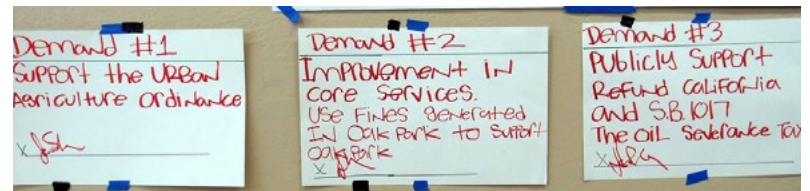 Demand #1
Support the Urban
Agriculture Ordinance
X
Demand #2
Improvement in
Core Services.
Use Fines generated
In Oak Park to Support
Oak Park
X
Demand #3
Publicly Support
Refund California
and S.B. 1017
The Oil Severance Tax
X